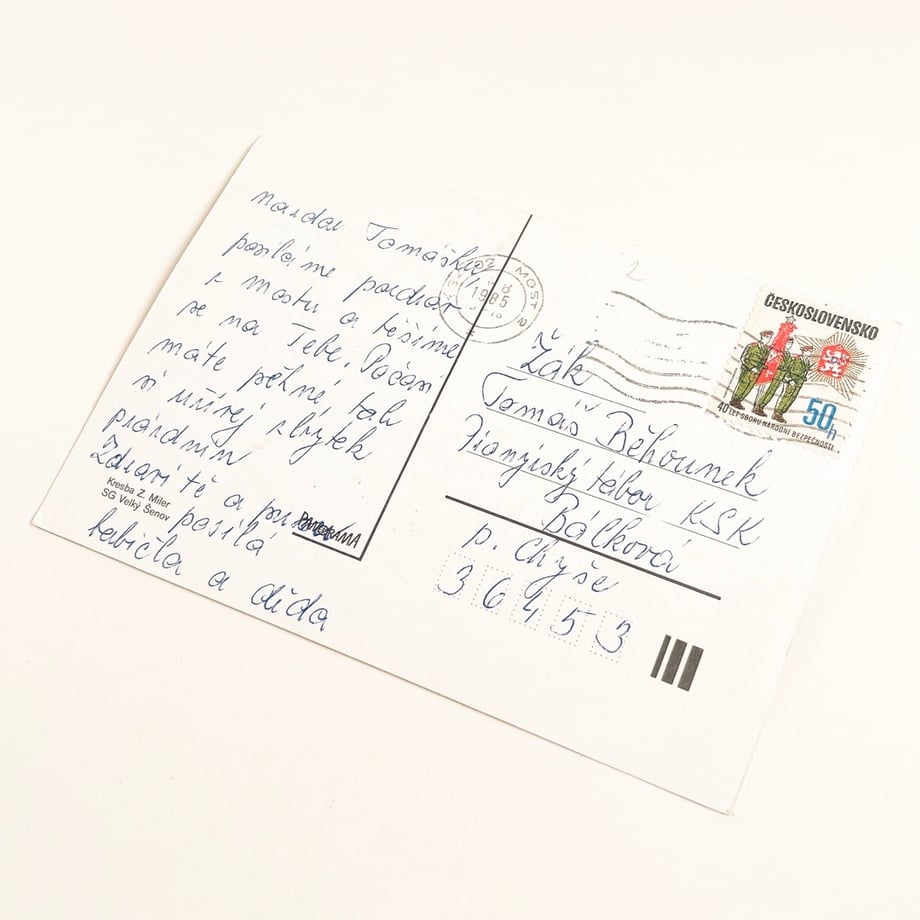 nazdar Tomášku
posíláme pozdrav
z mostu a těšíme
se na Tebe. Počasí
máte pěkné tak
si užívej zbytek
prázdnin
Zdraví tě a
posílá
babička a děda
Kresba Z. Miler
SG Velký Šenov
PANORAMA
MOST
8
1985
ČESKOSLOVENSKO
40 LET SBORU NÁRODNÍ BEZPEČNOSTI
50h
2
Žák
Tomáš Běhounek
Pionýrský tábor KSK
Bálková
p. Chyše
36453